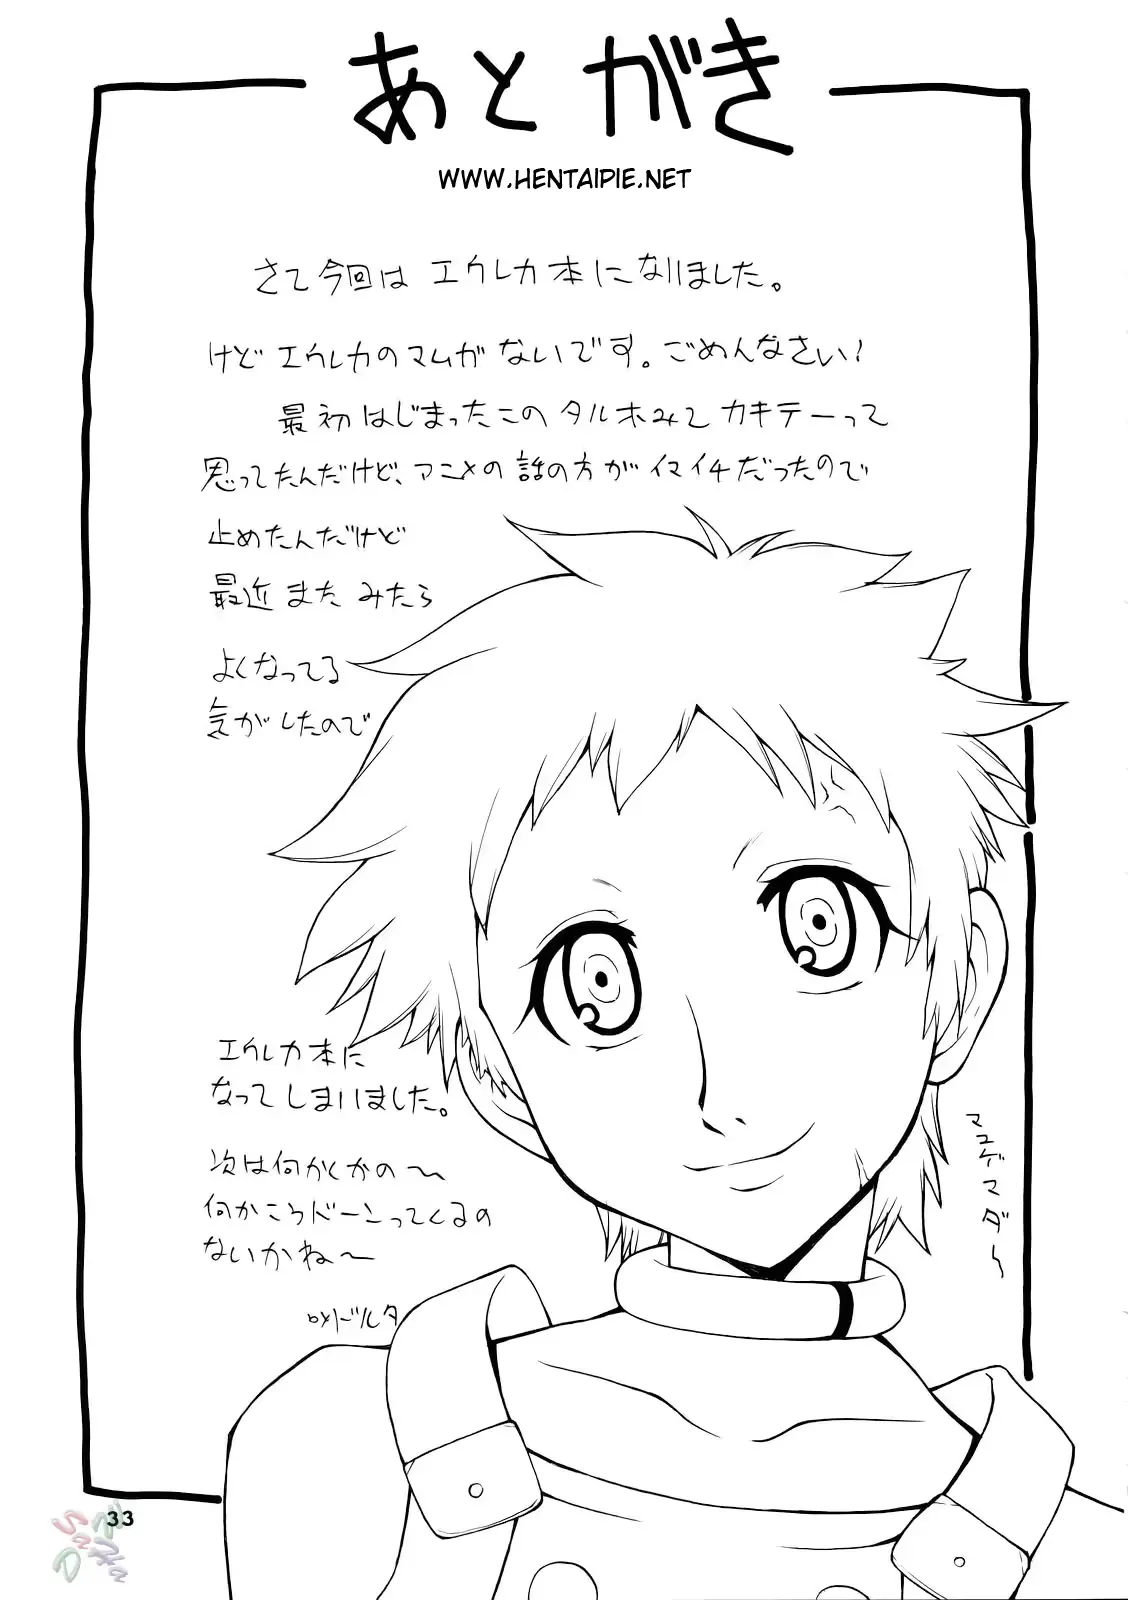 あとがき
WWW.HENTAIPIE.NET
さて今回は エウレカ本になりました。
けど エウレカのマムが ないです。ごめんなさい!
最初はじまったこの タルホみて カキテーって
思ってたんだけど、アニメの 話の方が イマイチだったので
止めたんだけど
最近 また みたら
よくなってる
気がしたので
エウレカ本に
なってしまいました。
次は何かくかの〜
何かこうドーンってくるの
ないかね〜
マユゲマダ〜
33